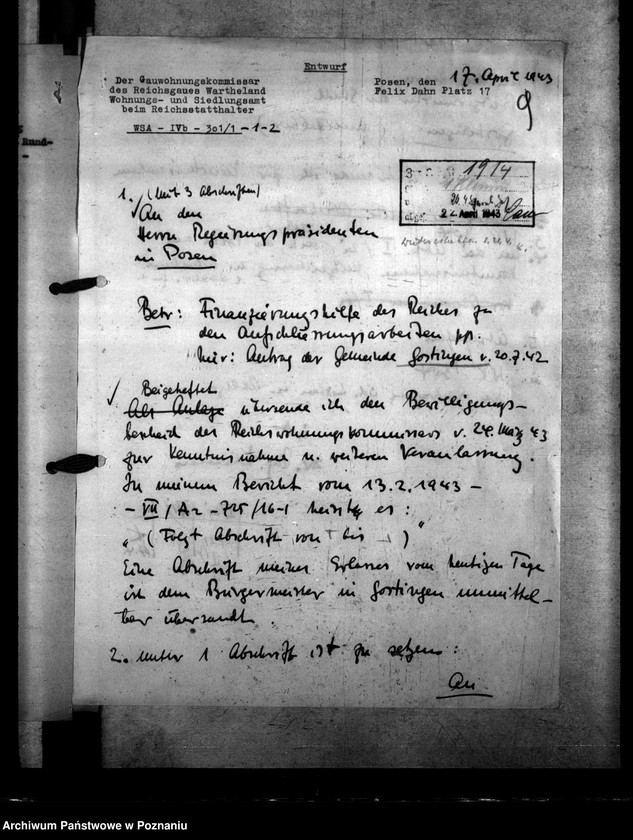 Entwurf
Der Gauwohnungskommissar
des Reichsgaues Wartheland
Wohnungs- und Siedlungsamt
beim Reichsstatthalter
WSA - IVb - 301/1 - 1-2
Posen, den 17. April 1943
Felix Dahn Platz 17
1914
24. April 1943
1. (Mit 3 Abschriften)
An den
Herrn Regierungspräsidenten
in Posen
Betr: Finanzierungshilfe des Reiches zu
den Aufschliessungsarbeiten pp.
hier: Antrag der Gemeinde Gostingen v. 20.7.42
Beigeheftet
Als Anlage übersende ich den Bewilligungs-
bescheid des Reichswohnungskommissars v. 24. März 43
zur Kenntnisnahme u. weiteren Veranlassung.
In meinem Bericht vom 13.2.1943 -
- VII/A2 - 725/16-1 heisst es:
" (Folgt Abschrift von bis ) "
Eine Abschrift meines Erlasses vom heutigen Tage
ist dem Bürgermeister in Gostingen unmittel-
bar übersandt.
2. unter 1 Abschrift ist zu setzen:
An
Rund-
Archiwum Państwowe w Poznaniu